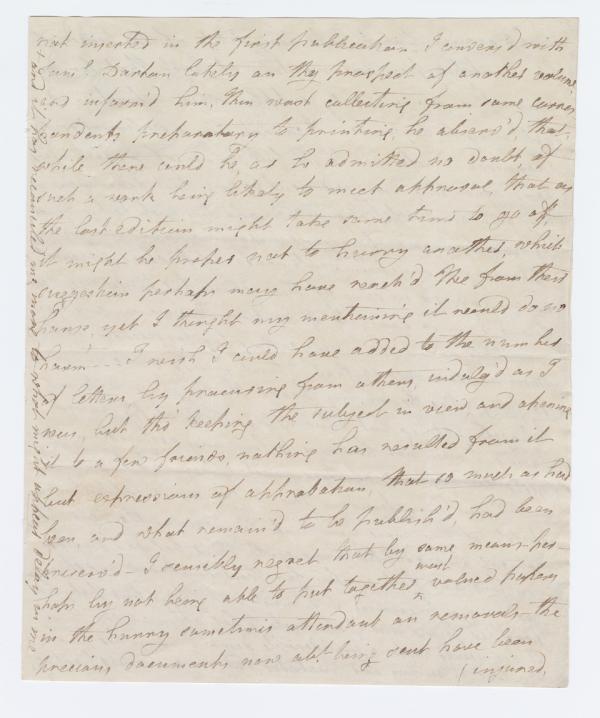 not inserted in the first publication. I convers'd with
Sam.l Darton lately on thy prospect of another volume
and inform'd him, thou wast collecting from some corres
pondents preparatory to printing, he observ'd, that
while there could be, as he admitted no doubt, of
such a work being likely to meet approval, that as
the last edition might take some time to go off,
it might be proper not to hurry another, which
suggestion perhaps may have reach'd thee from their
house, yet I thought my mentioning it would do no
harm --- I wish I could have added to the number
of letters, by procuring from others, indulg'd as I
was, but tho' keeping the subject in view, and opening
it to a few friends, nothing has resulted from it
but expressions of approbation, that so much as had
been and what remain'd to be publish'd, had been
preserv'd - I sensibly regret that by some means per-
haps by not being able to put together most valued papers
in the hurry sometimes attendant on removals - the
precious documents now abt. being sent have been
(injured,
and it has reconciled me more to what might appear delay in me